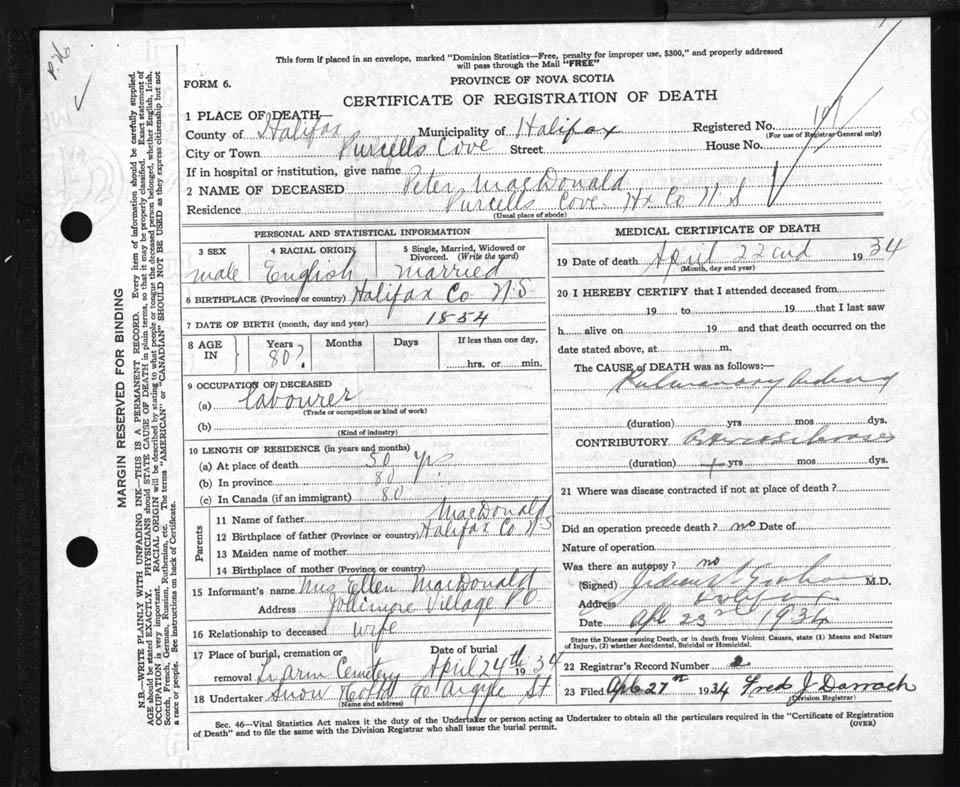 P.26
This form if placed in an envelope, marked "Dominion Statistics—Free, penalty for improper use, $300," and properly addressed
will pass through the Mail "FREE"
FORM 6.
PROVINCE OF NOVA SCOTIA
CERTIFICATE OF REGISTRATION OF DEATH
1 PLACE OF DEATH—
County of Halifax Municipality of Halifax Registered No.
(For use of Registrar General only)
City or Town Purcells Cove Street House No.
If in hospital or institution, give name
2 NAME OF DECEASED Peter MacDonald
Residence Purcells Cove Hx Co N S
(Usual place of abode)
PERSONAL AND STATISTICAL INFORMATION
3 SEX 4 RACIAL ORIGIN 5 Single, Married, Widowed or Divorced. (Write the word)
male English married
6 BIRTHPLACE (Province or country) Halifax Co N S
7 DATE OF BIRTH (month, day and year) 1854
8 AGE IN Years Months Days If less than one day,
80? hrs. or min.
9 OCCUPATION OF DECEASED
(a) labourer
(Trade or occupation or kind of work)
(b)
(Kind of industry)
10 LENGTH OF RESIDENCE (in years and months)
(a) At place of death 50 yr.
(b) In province 80
(c) In Canada (if an immigrant) 80
Parents
11 Name of father MacDonald
12 Birthplace of father (Province or country) Halifax Co N S
13 Maiden name of mother
14 Birthplace of mother (Province or country)
15 Informant's name Mrs Ellen MacDonald
Address Jollimore Village P O
16 Relationship to deceased wife
17 Place of burial, cremation or Date of burial
removal Cemetery April 24th 1934
18 Undertaker Snow 90 Argyle St
(Name and address)
MEDICAL CERTIFICATE OF DEATH
19 Date of death April 22nd 1934
(Month, day and year)
20 I HEREBY CERTIFY that I attended deceased from
19 to 19 that I last saw
h alive on 19 and that death occurred on the
date stated above, at m.
The CAUSE of DEATH was as follows:—
Pulmonary
(duration) yrs mos dys.
CONTRIBUTORY
(duration) yrs mos dys.
21 Where was disease contracted if not at place of death?
Did an operation precede death? no Date of
Nature of operation
Was there an autopsy? no
(Signed) M.D.
Address Halifax
Date Apl 23rd 1934
State the Disease causing Death, or in death from Violent Causes, state (1) Means and Nature
of Injury, (2) whether Accidental, Suicidal or Homicidal.
22 Registrar's Record Number 2
23 Filed Apl 27th 1934 Fred J Darrach
(Division Registrar)
Sec. 46—Vital Statistics Act makes it the duty of the Undertaker or person acting as Undertaker to obtain all the particulars required in the "Certificate of Registration
of Death" and to file the same with the Division Registrar who shall issue the burial permit.
(OVER)
MARGIN RESERVED FOR BINDING
N.B.—WRITE PLAINLY WITH UNFADING INK—THIS IS A PERMANENT RECORD. Every item of information should be carefully supplied.
AGE should be stated EXACTLY. PHYSICIANS should STATE CAUSE OF DEATH in plain terms, so that it may be properly classified. Exact statement of
OCCUPATION is very important. RACIAL ORIGIN will be described by stating to what people or tongue the deceased person belonged, whether English, Irish,
Scotch, French, German, Russian, Ruthenian, etc. The terms "AMERICAN" or "CANADIAN" SHOULD NOT BE USED as they express citizenship but not
a race or people. See instructions on back of Certificate.